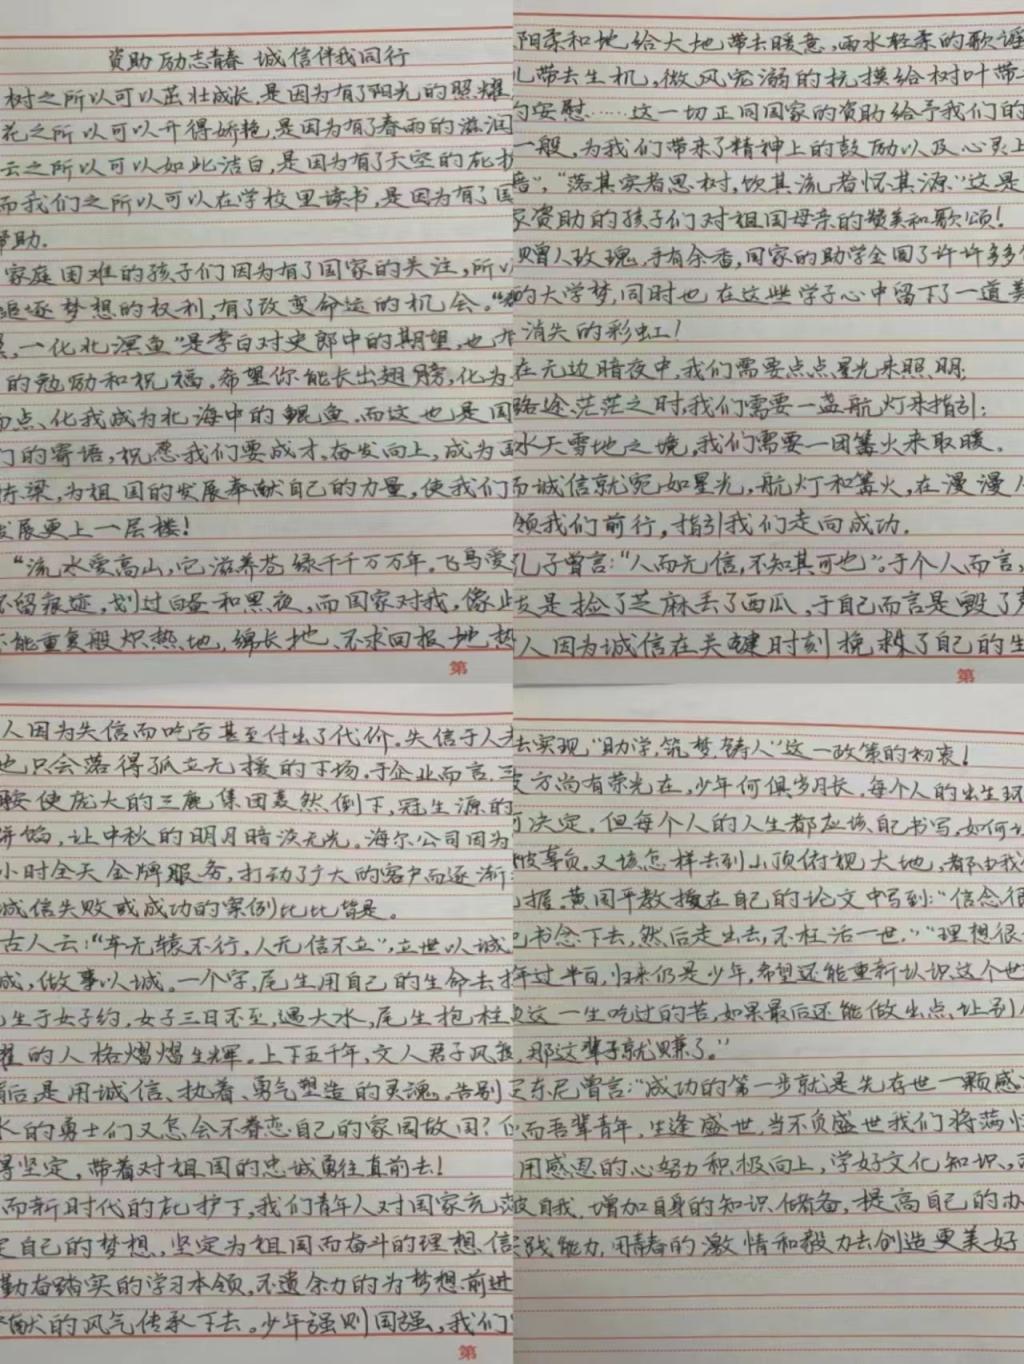 资助励志青春 诚信伴我同行
树之所以可以茁壮成长,是因为有了阳光的照耀
花之所以可以开得娇艳,是因为有了春雨的滋润
云之所以可以如此洁白,是因为有了天空的庇护
而我们之所以可以在学校里读书,是因为有了国
帮助.
家庭困难的孩子们因为有了国家的关注,所以
追逐梦想的权利,有了改变命运的机会。“
一化北溟鱼”是李白对史郎中的期望,也
的勉励和祝福,希望你能长出翅膀,化为
而点、化我成为北海中的鲲鱼.而这也是国
们的寄语,祝愿我们要成才,奋发向上,成为国
栋梁,为祖国的发展奉献自己的力量,使我们
发展更上一层楼!
“流水爱高山,它滋养苍绿千千万万年。飞鸟爱
不留痕迹,划过白昼和黑夜,而国家对我,像
不能重复般炽热地,绵长地、不求回报地,热
第
阳柔和地给大地带去暖意,雨水轻柔的歌谣
儿带去生机,微风宠溺的抚摸给树叶带
的安慰……这一切正同国家的资助给予我们的
一般,为我们带来了精神上的鼓励以及心灵上
“落其实者思树,饮其流者怀其源.”这是
家资助的孩子们对祖国母亲的赞美和歌颂!
赠人玫瑰,手有余香,国家的助学金圆了许许多多
的大学梦,同时也在这些学子心中留下了一道美
消失的彩虹!
在无边暗夜中,我们需要点点星光来照明;
路途茫茫之时,我们需要一盏航灯来指引;
冰天雪地之境,我们需要一团篝火来取暖.
而诚信就宛如星光,航灯和篝火,在漫漫
领我们前行,指引我们走向成功.
孔子曾言:“人而无信,不知其可也”。于个人而言,
友是捡了芝麻丢了西瓜,于自己而言是毁了
人因为诚信在关键时刻挽救了自己的生
第
人因为失信而吃亏甚至付出了代价。失信于人
也只会落得孤立无援的下场,于企业而言,三
胺使庞大的三鹿集团轰然倒下,冠生源的
饼馅,让中秋的明月暗淡无光。海尔公司因为
小时全天金牌服务,打动了广大的客户而逐渐
诚信失败或成功的案例比比皆是。
古人云:“车无辕不行,人无信不立”,立世以诚
诚,做事以诚。一个字,尾生用自己的生命去
尾生于女子约,女子三日不至,遇大水,尾生抱柱
的人格熠熠生辉。上下五千年,文人君子风
后是用诚信、执着、勇气塑造的灵魂。告别
水的勇士们又怎会不眷恋自己的家园故国?
得坚定,带着对祖国的忠诚勇往直前去!
而新时代的庇护下,我们青年人对国家充
定自己的梦想,坚定为祖国而奋斗的理想信
勤奋踏实的学习本领,不遗余力的为梦想前进
献的风气传承下去。少年强则国强,我们
第
去实现“助学,筑梦,铸人”这一政策的初衷!
彼方尚有荣光在,少年何惧岁月长,每个人的出生
可决定,但每个人的人生都应该自己书写,如何
被辜负,又该怎样去到山顶俯视大地,都由我
把握.黄国平教授在自己的论文中写到:“信念很
把书念下去,然后走出去,不枉活一世.”“理想很
年过半百,归来仍是少年,希望还能重新认识这个世
这一生吃过的苦,如果最后还能做出点让别人
那这辈子就赚了。”
安东尼曾言:“成功的第一步就是先存世一颗感
而吾辈青年,生逢盛世,当不负盛世我们将满
用感恩的心努力积极向上,学好文化知识,
破自我,增加自身的知识储备,提高自己的办
实践能力,用青春的激情和毅力去创造更美好